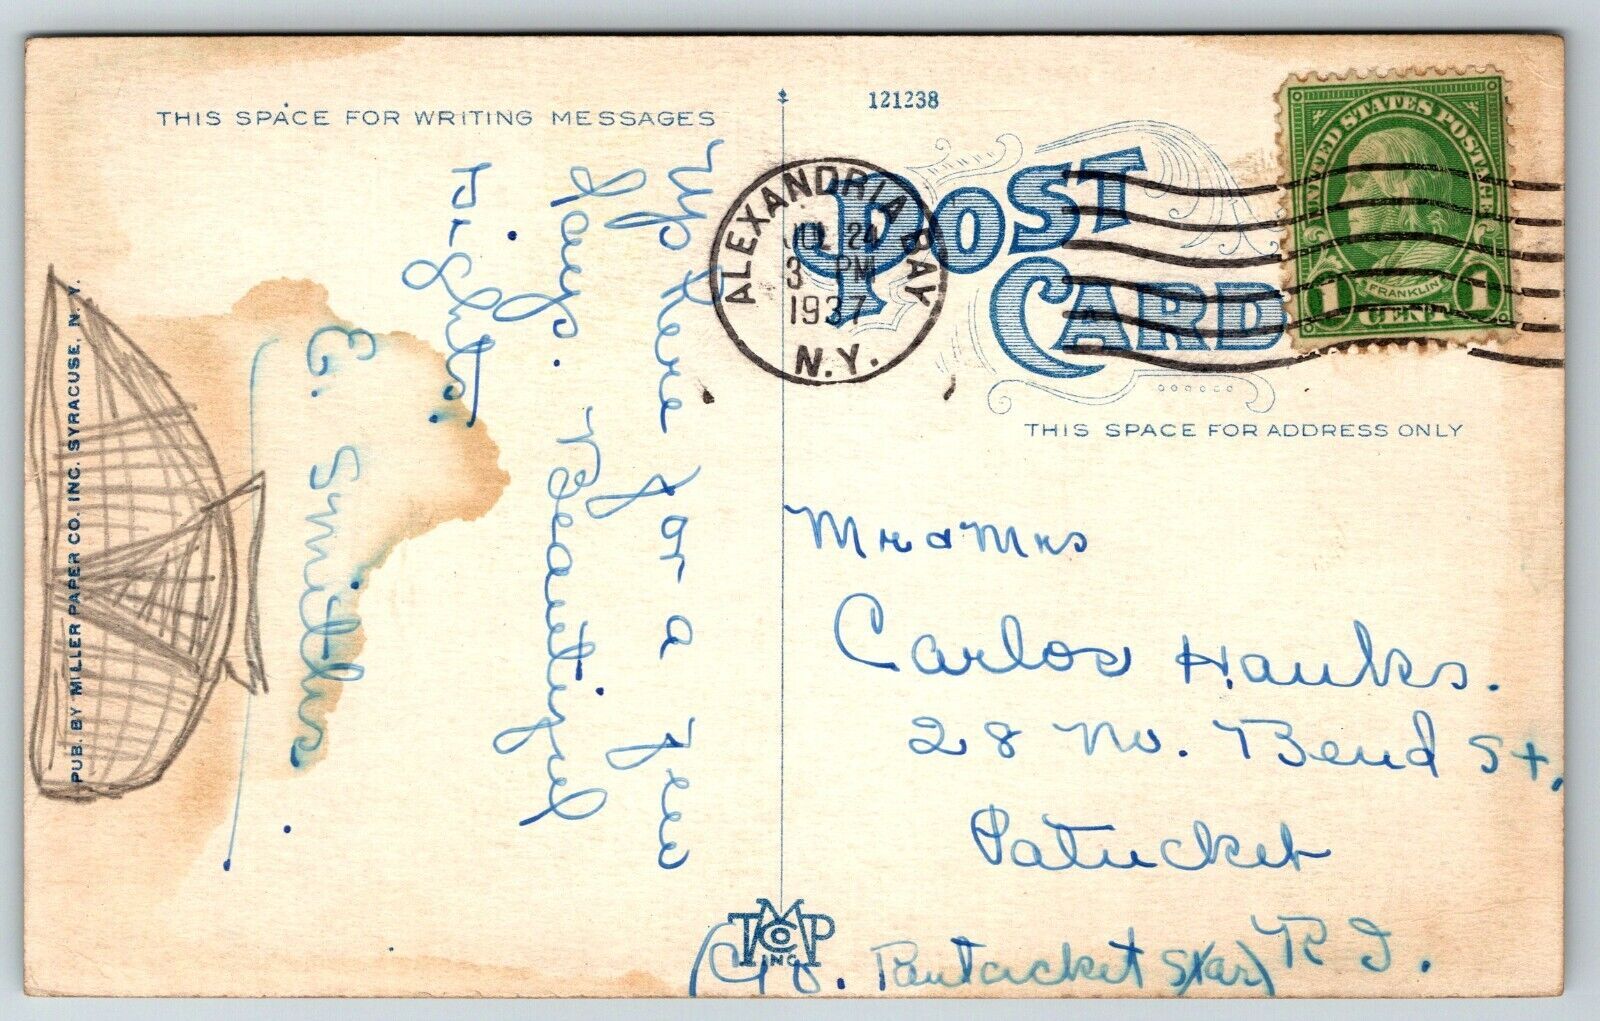 THIS SPACE FOR WRITING MESSAGES
Up here for a few
days. Beautiful
sights.
E. Smith
PUB. BY MILLER PAPER CO. INC. SYRACUSE, N. Y.
121238
POST
CARD
ALEXANDRIA BAY
JUL 24
3 PM
1937
N.Y.
UNITED STATES POSTAGE
FRANKLIN
1 CENT 1
THIS SPACE FOR ADDRESS ONLY
Mr & Mrs
Carlos Hanks.
28 No. Bend St,
Patucket
R I.
(C/o. Pawtucket Star)
TMP
Co
INC